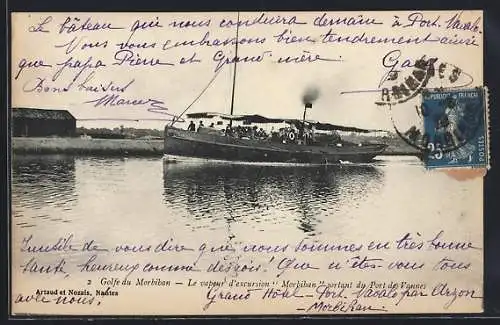 Le bâteau que nous conduira demain à Port-Navalo.
Vous vous embrassons bien tendrement ainsi
que papa Pierre et Grand'mère.
Bons baisers
Vannes
25
Inutile de vous dire que nous sommes en très bonne
santé, heureux comme des rois! Que n'êtes-vous tous
avec nous.
2 Golfe du Morbihan - Le vapeur d'excursion "Morbihan" sortant du Port de Vannes
Artaud et Nozais, Nantes
Grand Hôtel - Port-Navalo par Arzon
Morbihan.